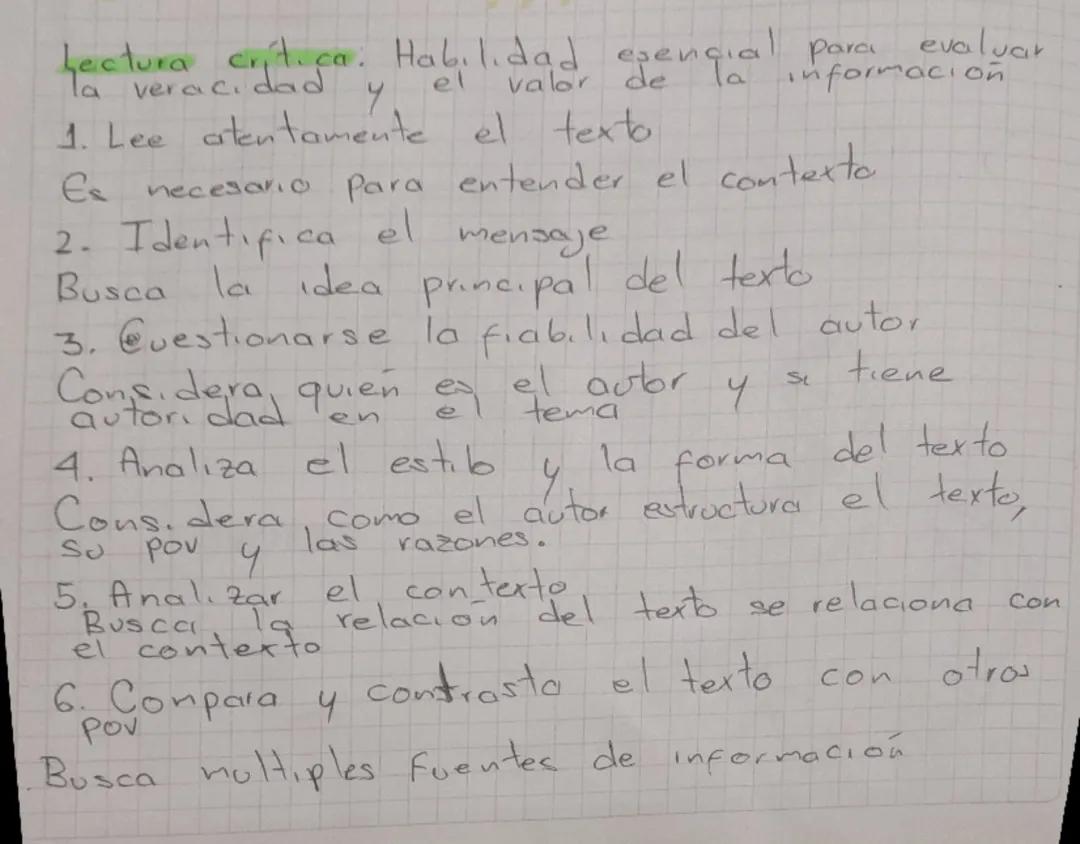 Lectura crítica: Habilidad esencial para evaluar
la veracidad y el valor de la información
1. Lee atentamente el texto
Es necesario para entender el contexto
2. Identifica el mensaje
Busca la idea principal del texto
3. Cuestionarse la fiabilidad del autor
Considera, quien es el autor y si tiene
autoridad en el tema
4. Analiza el estilo y la forma del texto
Considera, como el autor estructura el texto,
su pov y las razones.
5. Analizar el contexto
Busca la relación del texto se relaciona con
el contexto
6. Conpara y contrasta el texto con otros
pov
Busca multiples fuentes de información